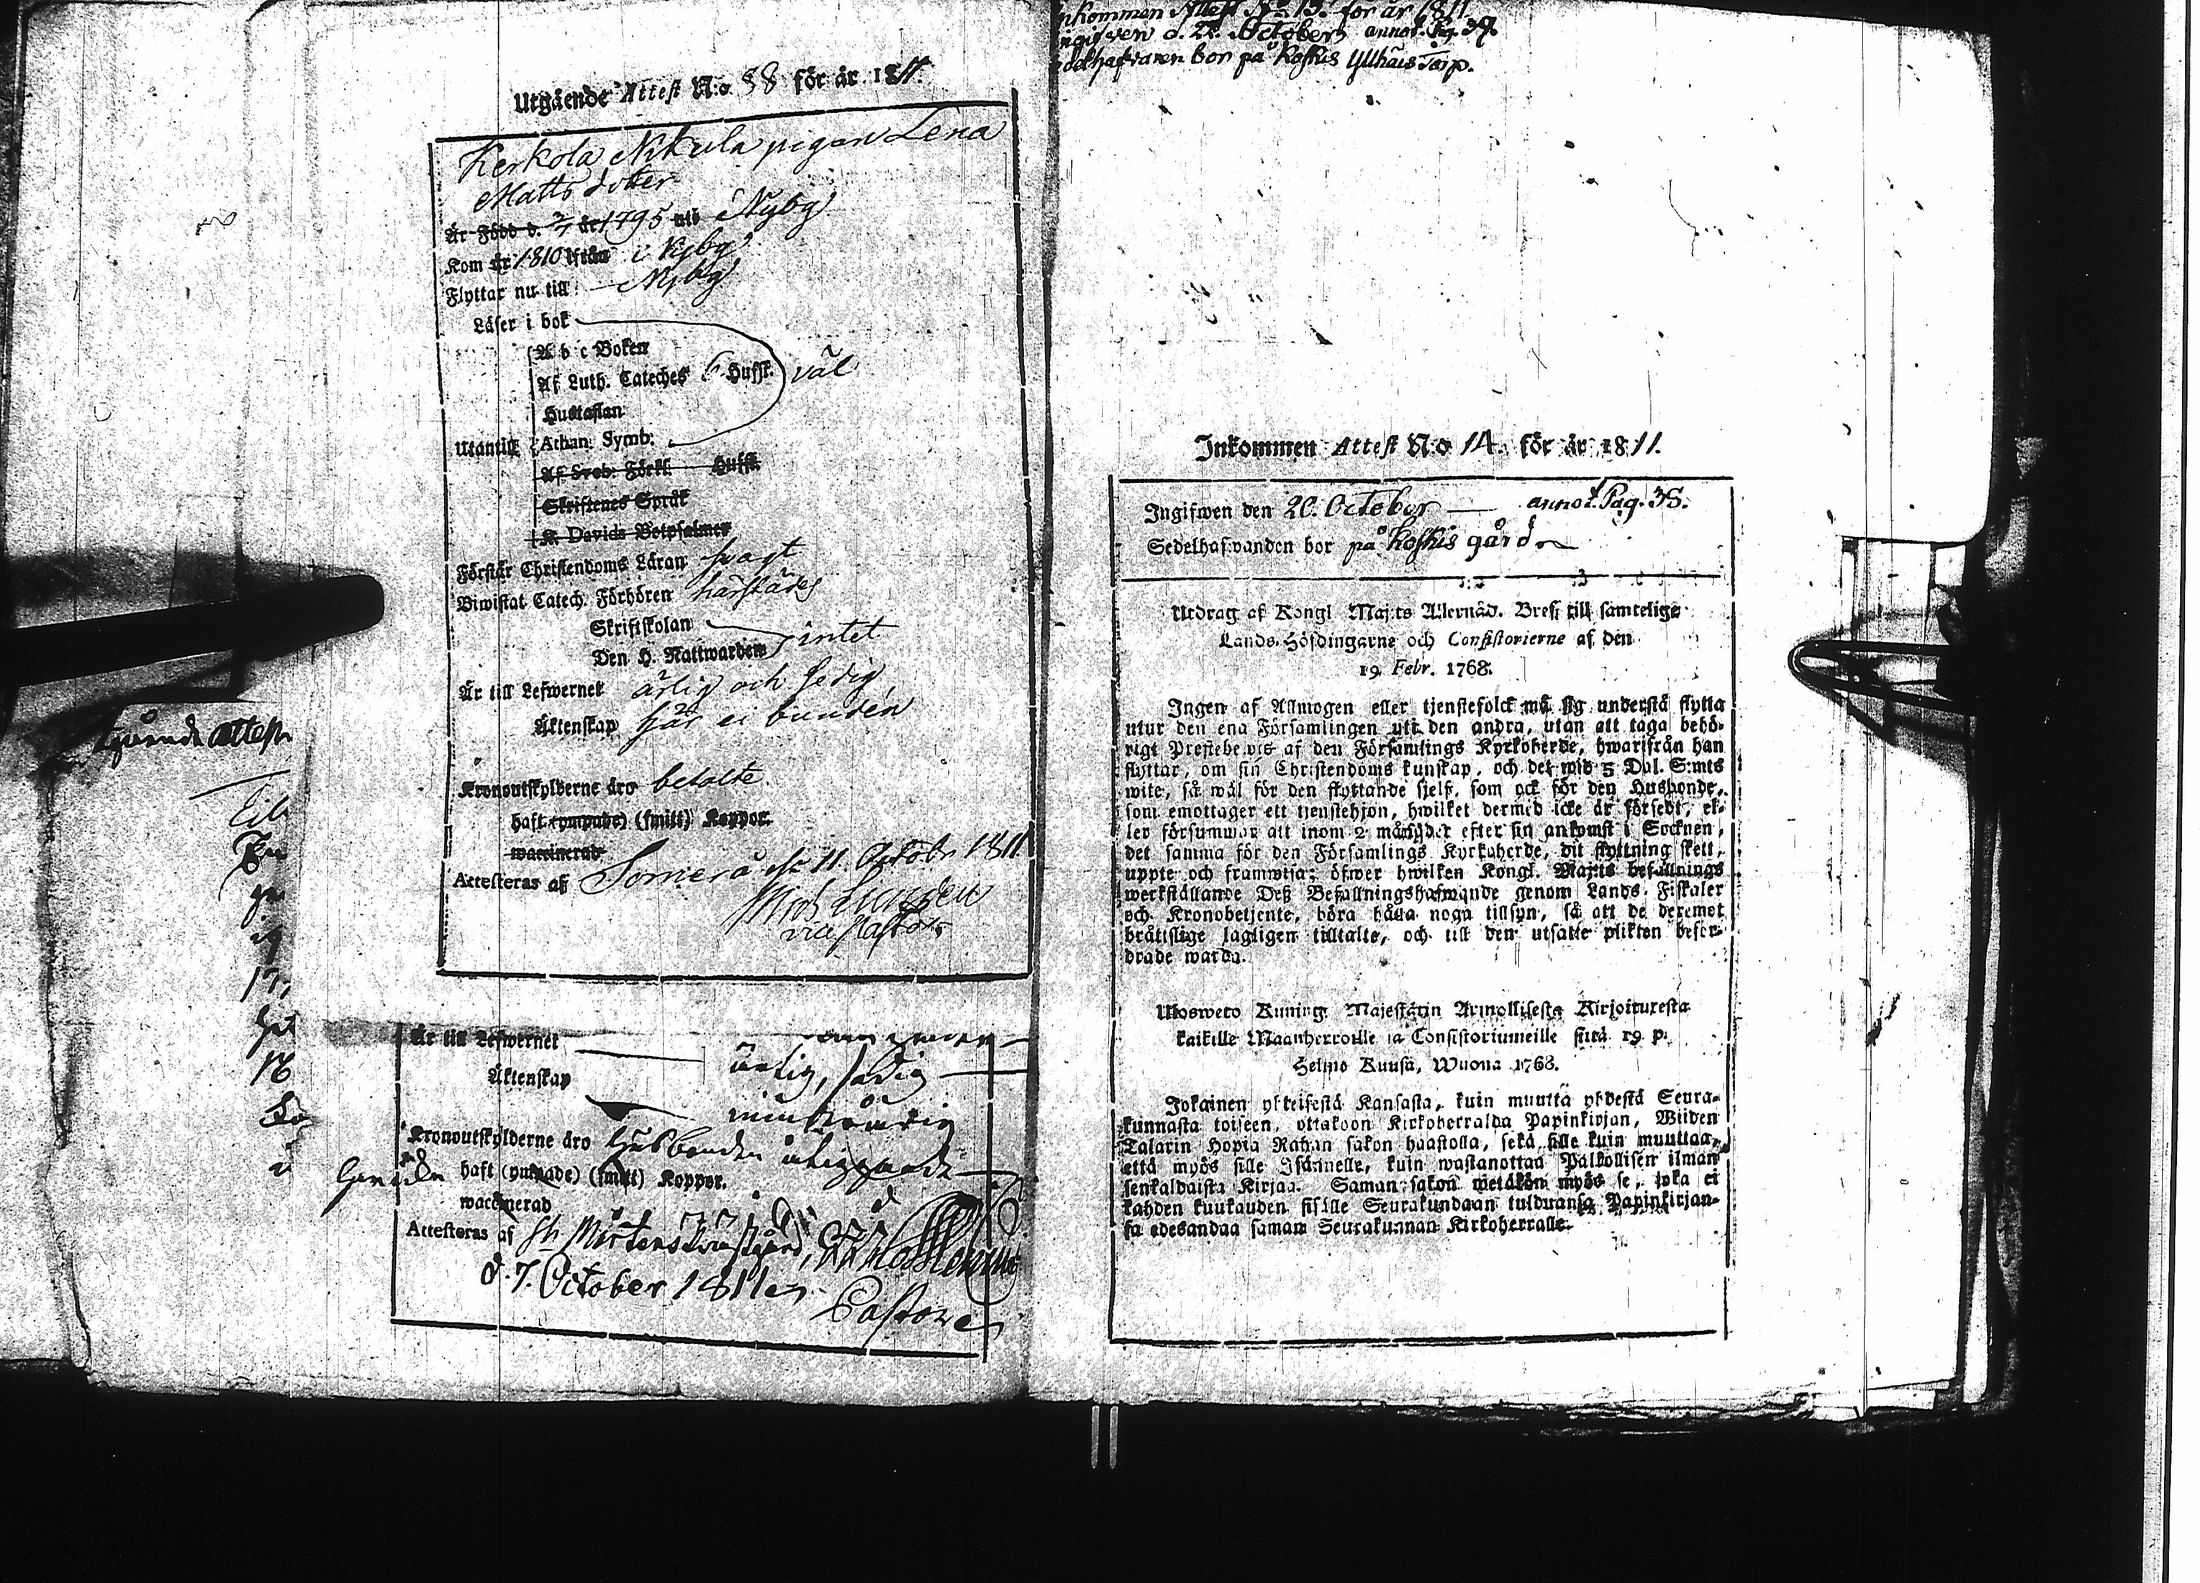 Utgående Attest N:o 88 för år 1811.
Kerkola Nikula pigan Lena
Mattsdotter
Är Född d. 2/7 år 1795 uti Nyby
Kom år 1810 ifrån i Nyby
Flyttar nu till Nyby
Läser i bok
A b c Boken
Af Luth. Cateches 6 Hufst. väl
Hustaflan
Utantill Athan: Symb:
Af Sveb: Förkl. Hufst.
Skriftenes Språk
K. Davids Botpsalmer
Förstår Christendoms Läran svagt
Biwistat Catech. Förhören härstädes
Skriftskolan
Den H. Nattwarden intet
Är till Lefwernet ärlig och sedig
Äktenskap här ei bunden
Kronoutskylderne äro betalte
haft (ympade) (smitt) Koppor.
waccinerad
Attesteras af Somero d. 11. Octobr 1811
vice Pastor
gående attest
Är till Lefwernet
Äktenskap ärlig, sedig
Kronoutskylderne äro Husbonden
haft (ympade) (smitt) Koppor.
waccinerad
Attesteras af St Mårtens
d. 7. October 1811
Pastor
Inkommen Attest No 13. för år 1811
Ingifven d. 22. October annot. Pag. 37.
Sedelhafvaren bor på Koskis Yllhäis Torp.
Inkommen Attest N:o 14. för år 1811.
Ingifwen den 20. October — annot. Pag. 38.
Sedelhafwanden bor på Koskis gård
Utdrag af Kongl Maj:ts Allernåd. Bref till samtelige
Lands-Höfdingarne och Consistorierne af den
19. Febr. 1768.
Ingen af Allmogen eller tjenstefolck må sig understå flytta
utur den ena Församlingen uti den andra, utan att taga behö-
rigt Prestebevis af den Församlings Kyrkoherde, hwarifrån han
flyttar, om sin Christendoms kunskap, och det wid 5 Dal. S:mts
wite, så wäl för den flyttande sjelf, som ock för den Husbonde,
som emottager ett tjenstehjon, hwilket dermed icke är försedt, el-
ler försummar att inom 2 månader efter sin ankomst i Socknen,
det samma för den Församlings Kyrkoherde, dit flyttning skett,
uppte och framwisa; öfwer hwilken Kongl. Maj:ts befallnings
werkställande Deß Befallningshafwande genom Lands-Fiskaler
och Kronobetjente, böra hålla noga tillsyn, så att de deremot
bråttslige lagligen tilltalte, och till den utsatte plikten befor-
drade warda.
Ulosweto Kuning: Majestätin Armollisesta Kirjoituresta
kaikille Maanherroille ja Consistoriumeille siitä 19. p.
Helmo Kuusa, Wuona 1768.
Jokainen yhteisestä Kansasta, kuin muuttä yhdestä Seura-
kunnasta toiseen, ottakoon Kirkoherralda Papinkirjan, Wiiden
Talarin Hopia Rahan sakon haastolla, sekä sille kuin muuttaa,
että myös sille Isännelle, kuin wastanottaa Palkollisen ilman
senkaldaista Kirjaa. Saman sakon wetäkön myös se, joka ei
kahden kuukauden sisälle Seurakundaan tulduansa Papinkirjan-
sa edesandaa saman Seurakunnan Kirkoherralle.